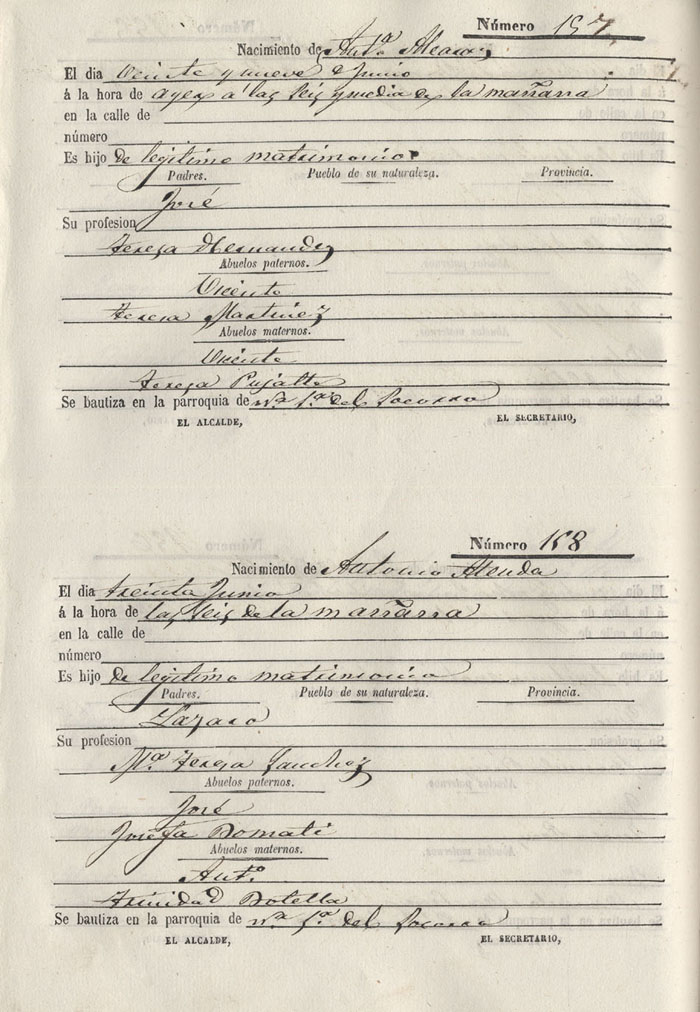 Número 157
Nacimiento de Antª Alcaraz
El dia Veinte y nueve de Junio
á la hora de ayer a las seis y media de la mañana
en la calle de
número
Es hijo de legitimo matrimonio
Padres. Pueblo de su naturaleza. Provincia.
José
Su profesion
Teresa Hernandez
Abuelos paternos.
Vicente
Teresa Martinez
Abuelos maternos.
Vicente
Teresa Pujalte
Se bautiza en la parroquia de Nª Sª del Socorro
EL ALCALDE, EL SECRETARIO,
Número 158
Nacimiento de Antonio Alenda
El dia treinta Junio
á la hora de las seis de la mañana
en la calle de
número
Es hijo de legitimo matrimonio
Padres. Pueblo de su naturaleza. Provincia.
Lazaro
Su profesion
Mª Teresa Sanchez
Abuelos paternos.
José
Josefa
Abuelos maternos.
Antº
Trinidad Botella
Se bautiza en la parroquia de Nª Sª del Socorro
EL ALCALDE, EL SECRETARIO,